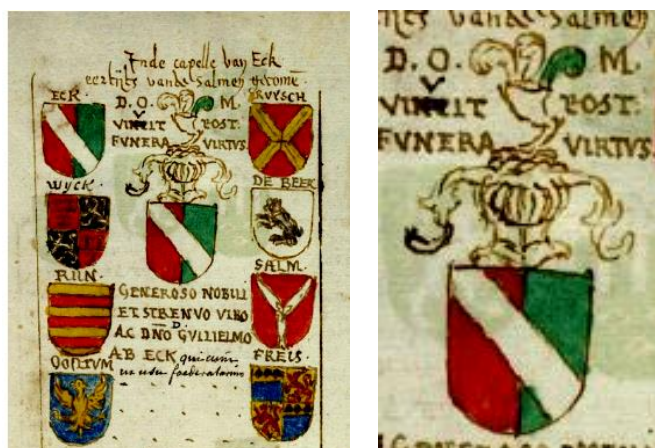 Inde capelle van Eck
eertijts vande Salmen
ECK.
D. O. M.
RUYSCH
VIVIT POST
FVNERA VIRTVS.
WYCK.
DE BEEK
RIIN
SALM
GENEROSO NOBILI
ET STRENVO VIRO
AC DNO GVLIELMO
AB ECK
FREIS.
vande Salmen
D. O. M.
POST:
FVNERA VIRTVS.